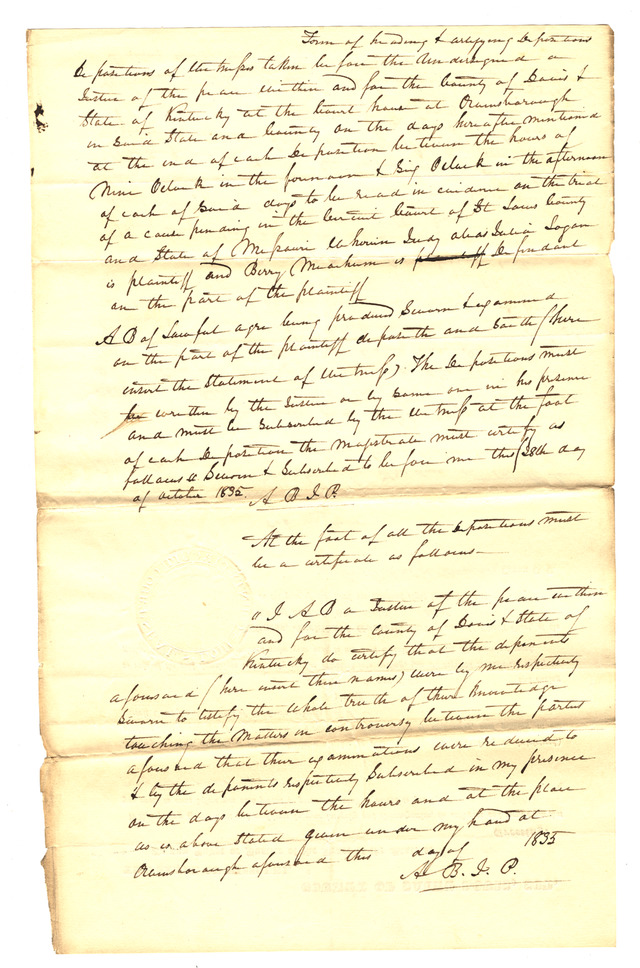 Form of heading & certifying Depositions
Depositions of Witnesses taken before the Undersigned a
Justice of the peace within and for the County of Davis &
State of Kentucky at the Court house at Owensborough
in Said State and County on the days hereafter mentioned
at the end of each Deposition between the hours of
Nine Oclock in the forenoon & Six Oclock in the afternoon
of each of Said days to be read in evidence on the trial
of a cause pending in the Circuit Court of St Louis County
and State of Missouri Wherein Judy alias Julia Logan
is plaintiff and Berry Meachum is plaintiff Defendant
on the part of the plaintiff
A B of Lawful age being produced Sworn & examined
on the part of the plaintiff deposeth and Saith (here
insert the Statement of Witness). The Depositions must
be written by the Justice or by Some one in his presence
and must be Subscribed by the Witness at the foot
of each Deposition the Magistrate must certify as
follows " Sworn & Subscribed to before me this (28th day
of October 1835. A B J. P.
At the foot of all the Depositions must
be a certificate as follows—
"I A B a Justice of the peace within
and for the County of Davis & State of
Kentucky do certify that the deponents
aforesaid (here insert their names) were by me respectively
Sworn to testify the whole truth of their Knowledge
touching the Matters in controversy between the parties
aforesaid that their examinations were reduced to
& by the deponents respectively Subscribed in my presence
on the days between the hours and at the place
as is above Stated given under my hand at
Owensborough aforesaid this day of 1835
A. B. J. P.